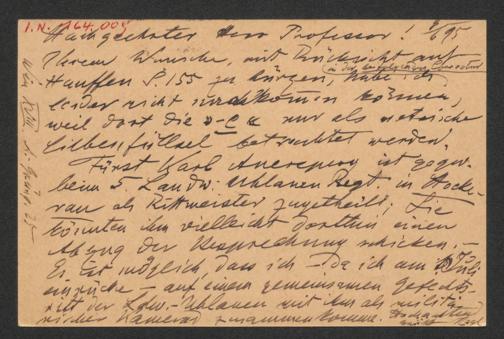 I.N. 164.005
Hochgeehrter Herr Professor! 8/6 95
Ihrem Wunsche, mit Rücksicht auf
Hauffen S. 155 zu kürzen, habe ich
leider nicht nachkommen können,
weil dort die nur als metrische
Silbenfüllsel betrachtet werden.
Fürst Karl Auersperg ist gegen-
beim 5. Landw. Uhlanen Regt. in Stocke-
rau als Rittmeister zugetheilt; Sie
könnten ihm vielleicht dorthin einen
Abzug der Besprechung schicken. –
Es ist möglich, dass ich – da ich am Juli
einrücke – auf einem gemeinsamen Gefechts-
ritt der Ldw.-Uhlanen mit ihm als militä-
rischer Kamerad zusammenkomme.
Wien